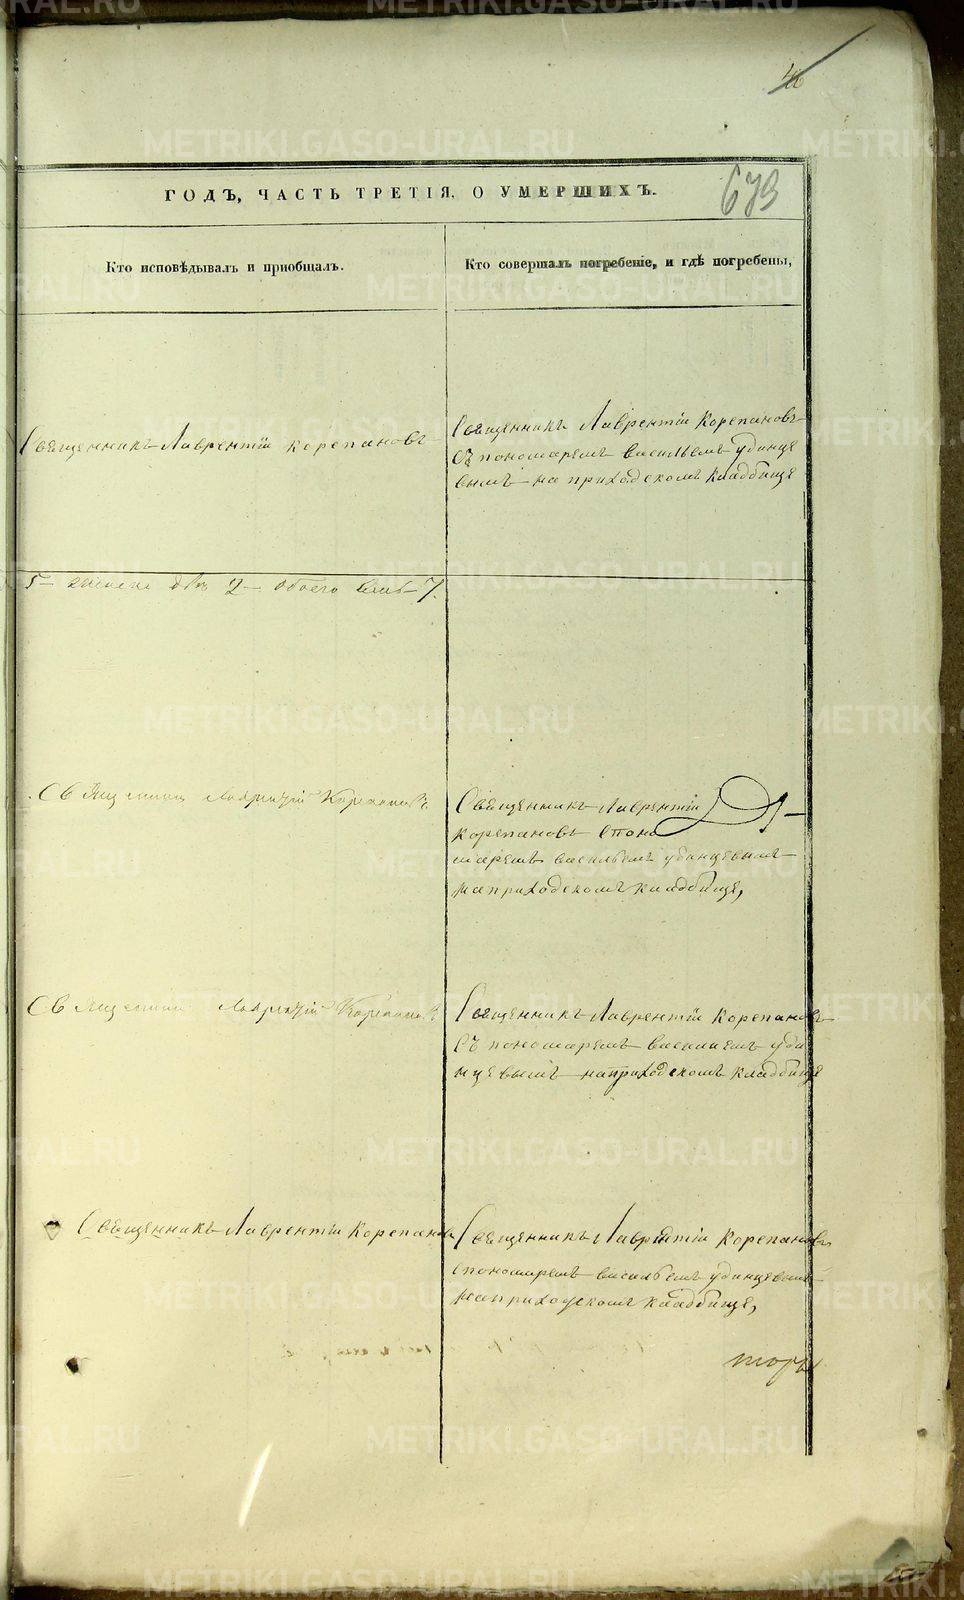 46
ГОДЪ, ЧАСТЬ ТРЕТІЯ, О УМЕРШИХЪ.
679
Кто исповѣдывалъ и пріобщалъ.
Кто совершалъ погребеніе, и гдѣ погребены,
Священникъ Лаврентій Корепановъ
Священникъ Лаврентій Корепановъ
съ пономаремъ васильемъ удинце
вымъ на приходскомъ кладбище
5 – женска 2 – обоего 7.
Священникъ Лаврентій Корепановъ
Священникъ Лаврентій
Корепановъ с поно
маремъ васильемъ удинцевымъ
на приходскомъ кладбище,
Священникъ Лаврентій Корепановъ
Священникъ Лаврентій Корепановъ
съ пономаремъ василиемъ уди
нцевымъ на приходскомъ кладбище
Священникъ Лаврентій Корепановъ
Священникъ Лаврентій Корепановъ
с пономаремъ васильемъ удинцевымъ
на приходскомъ кладбище,
METRIKI.GASO-URAL.RU